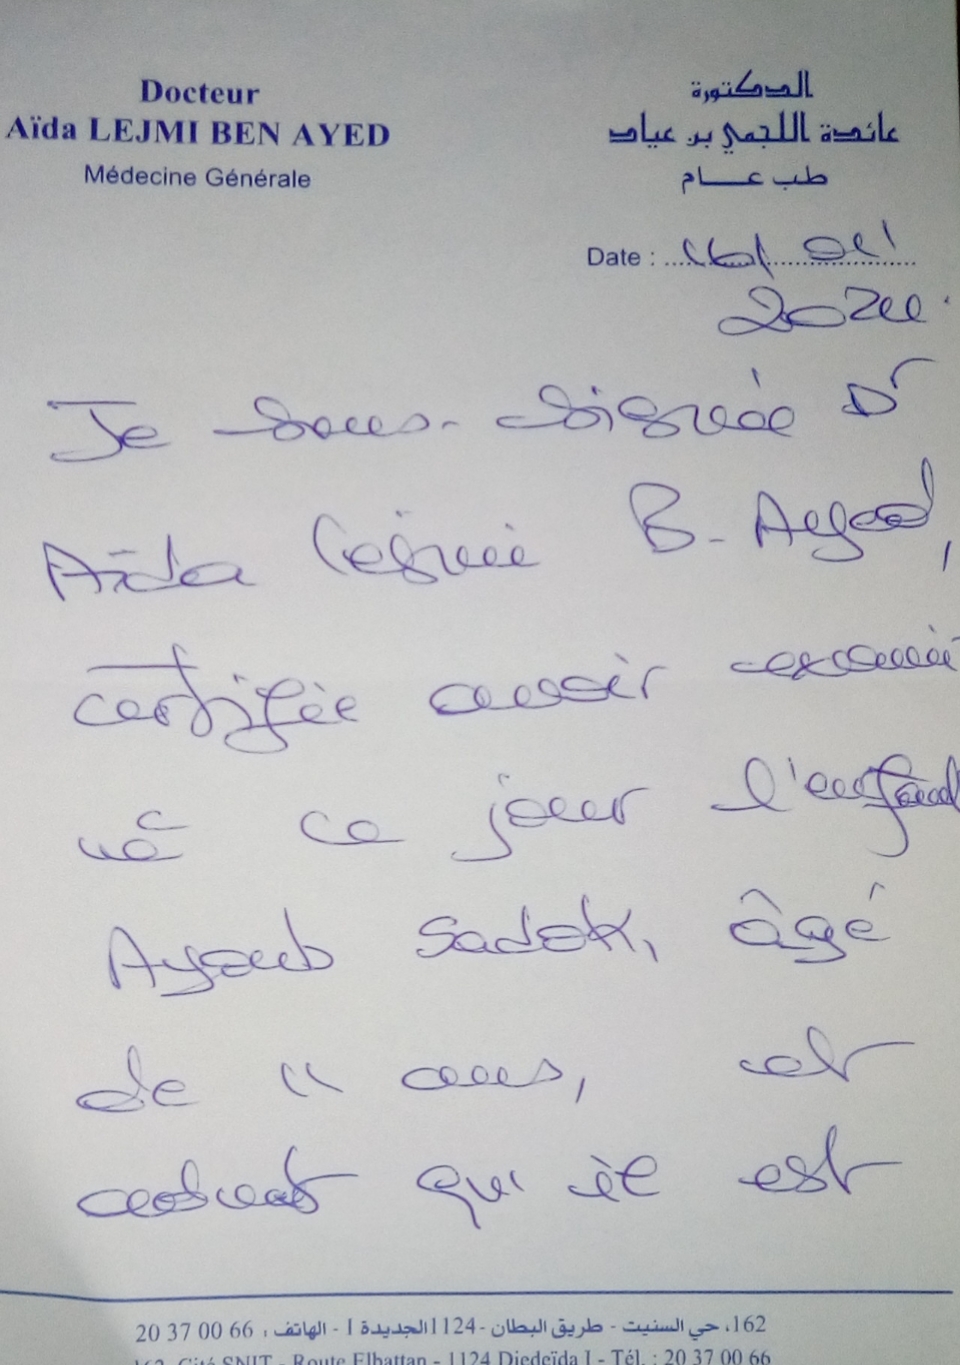 Docteur
Aïda LEJMI BEN AYED
Médecine Générale
الدكتورة
عائدة اللجمي بن عياد
طب عـــام
Date :
2024
Je sous-soignée Dr
Aïda Lejmi B. Ayed,
certifie avoir examiné
ce jour l'enfant
Ayoub Sadok, âgé
de 11 ans, et
qu'il est
162، حي السنيت - طريق البطان - 1124 الجديدة I - الهاتف : 66 00 37 20
162, Cité SNIT - Route Elbattan - 1124 Djedeïda I - Tél. : 20 37 00 66